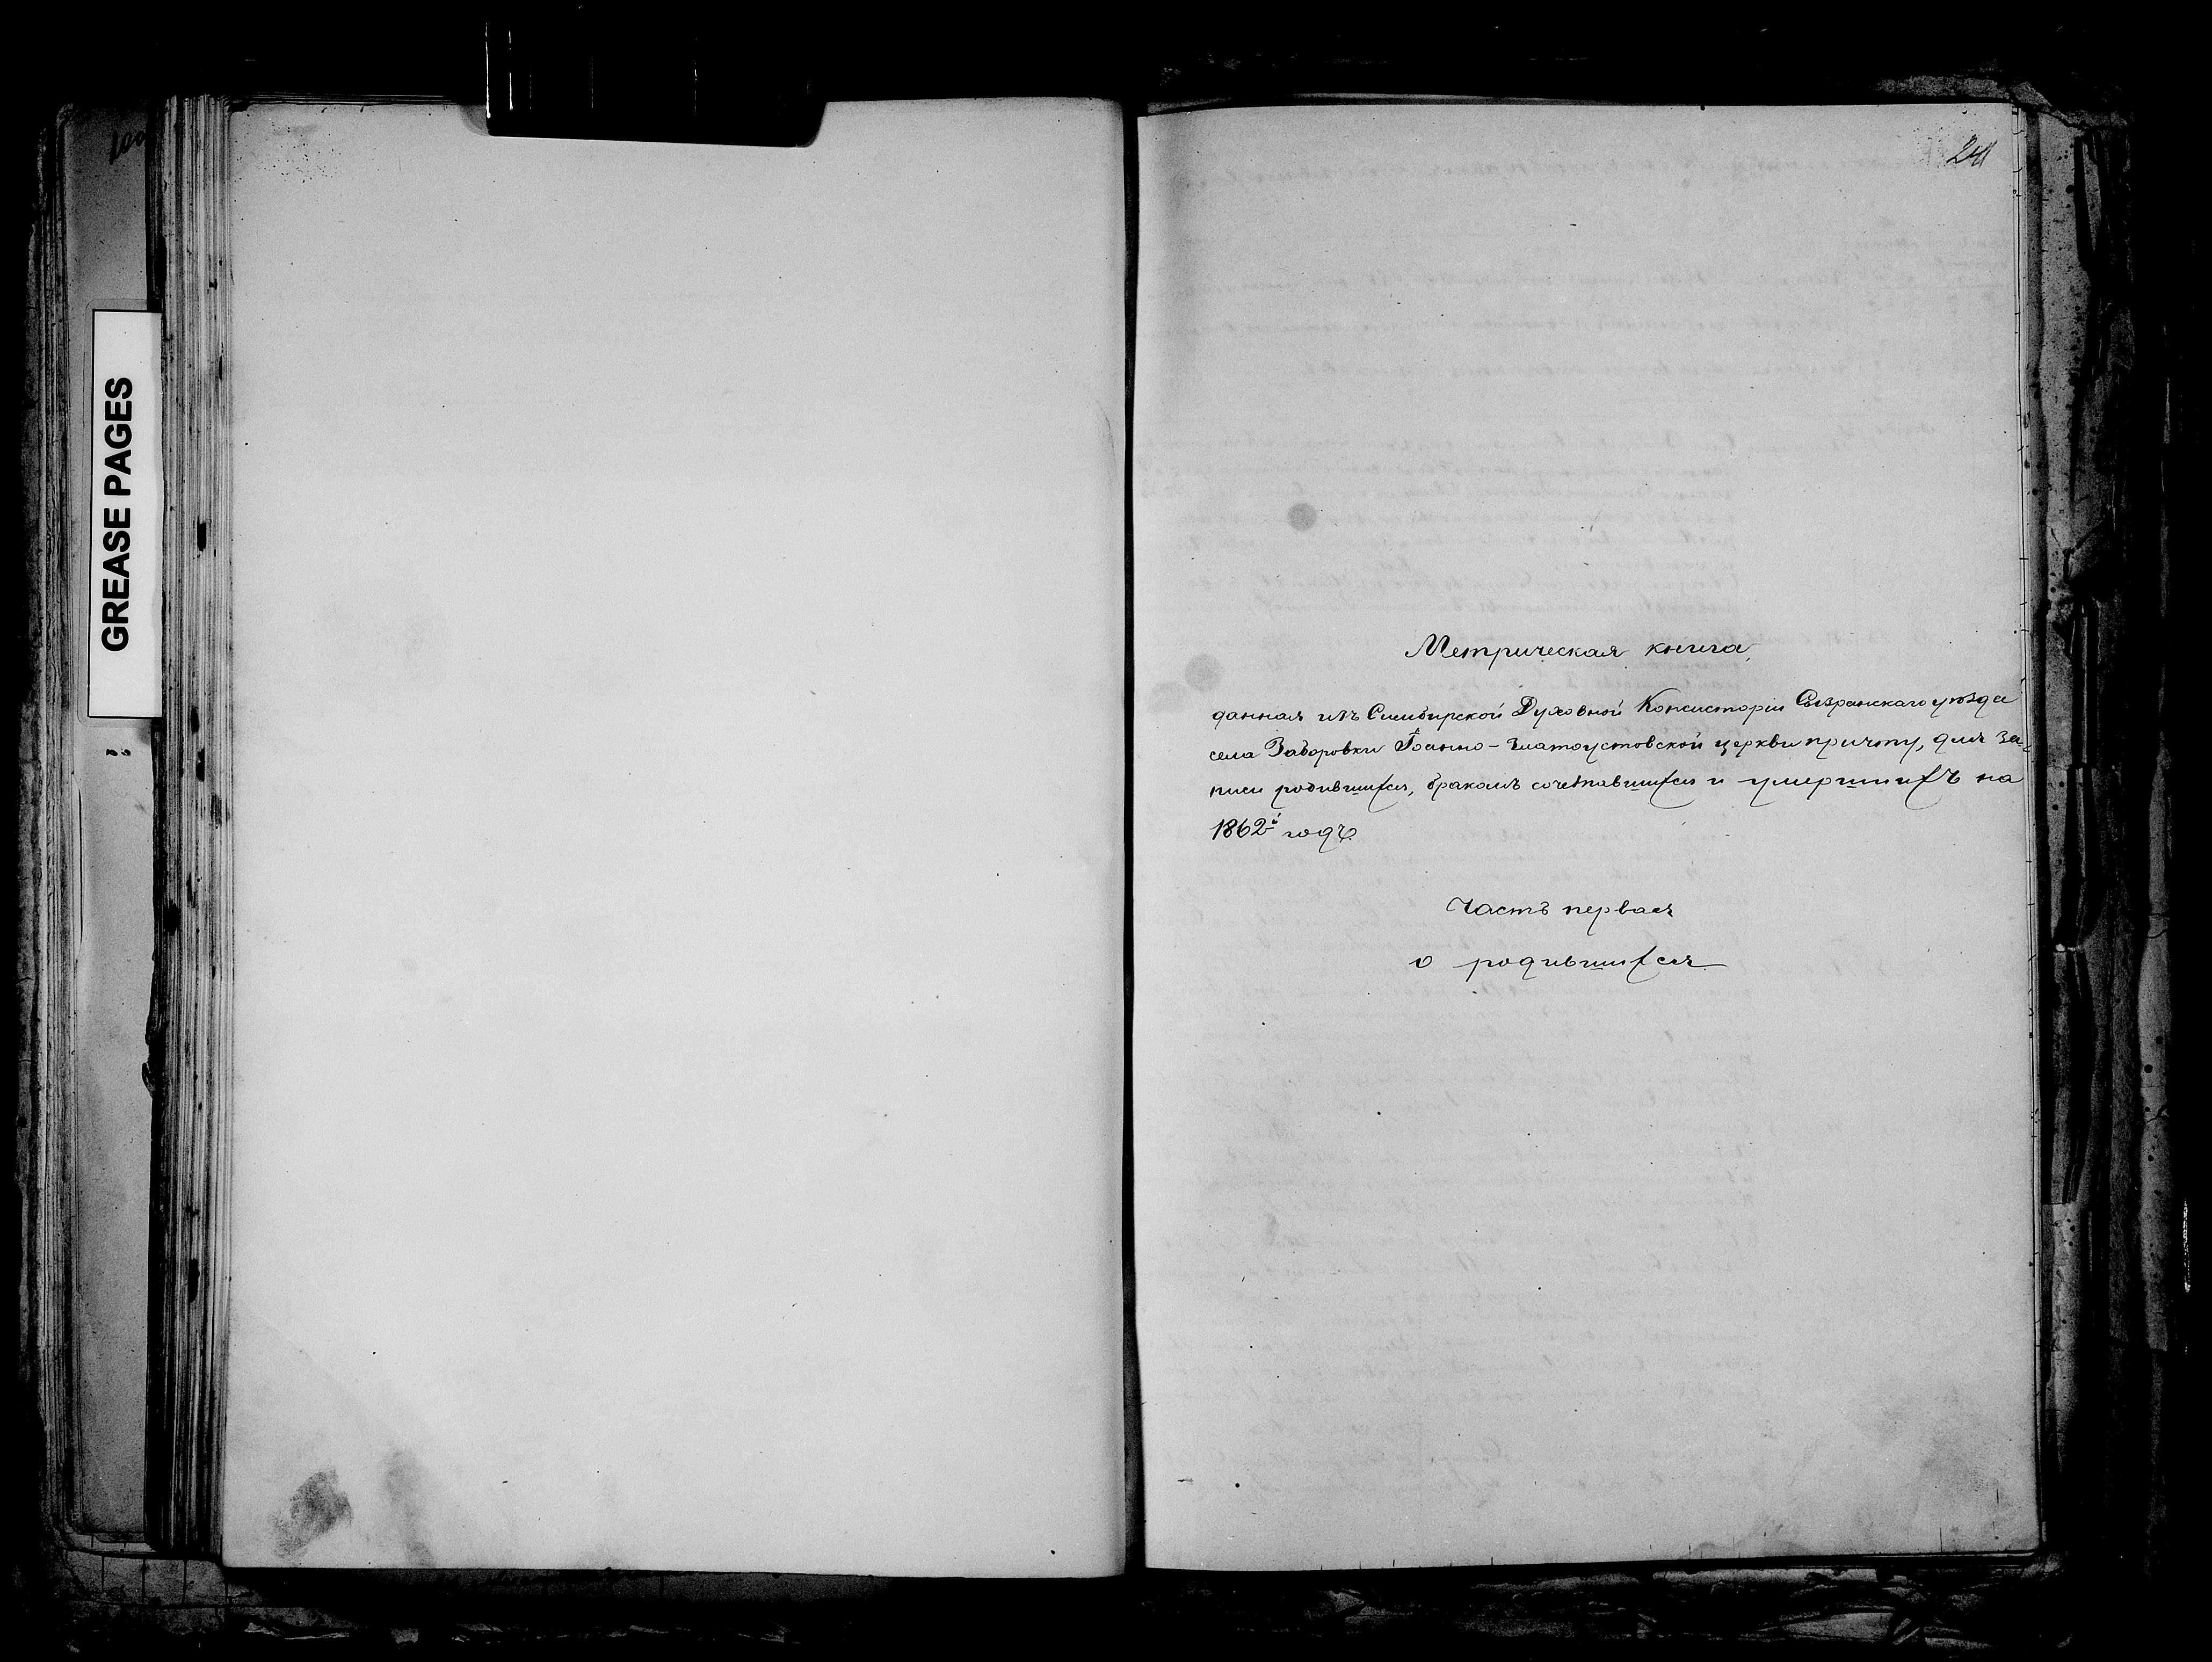 GREASE PAGES
Метрическая книга,
данная изъ Симбирской Духовной Консисторіи Сызранскаго уѣзда
села Заборовки Іоанно-Златоустовской церкви причту, для за-
писи родившихся, бракомъ сочетавшихся и умершихъ на
1862й годъ
Часть первая
о родившихся